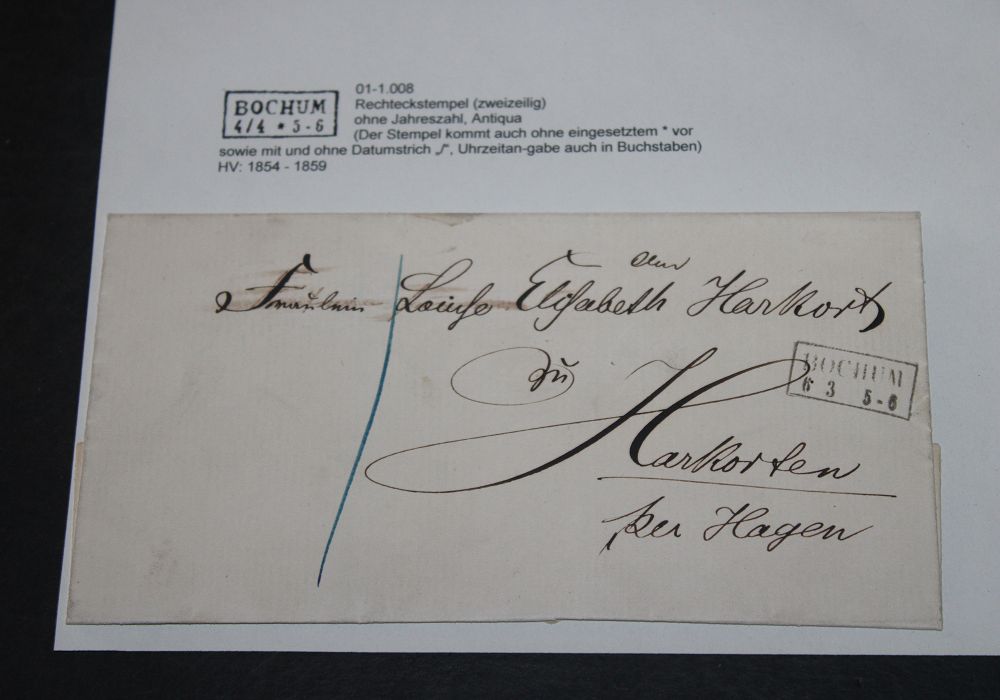 BOCHUM
4/4 * 5-6
01-1.008
Rechteckstempel (zweizeilig)
ohne Jahreszahl, Antiqua
(Der Stempel kommt auch ohne eingesetztem * vor
sowie mit und ohne Datumstrich „/", Uhrzeitan-gabe auch in Buchstaben)
HV: 1854 - 1859
Fräulein Louise Elisabeth Harkort
zu
BOCHUM
6 3 5-6
Harkorten
per Hagen